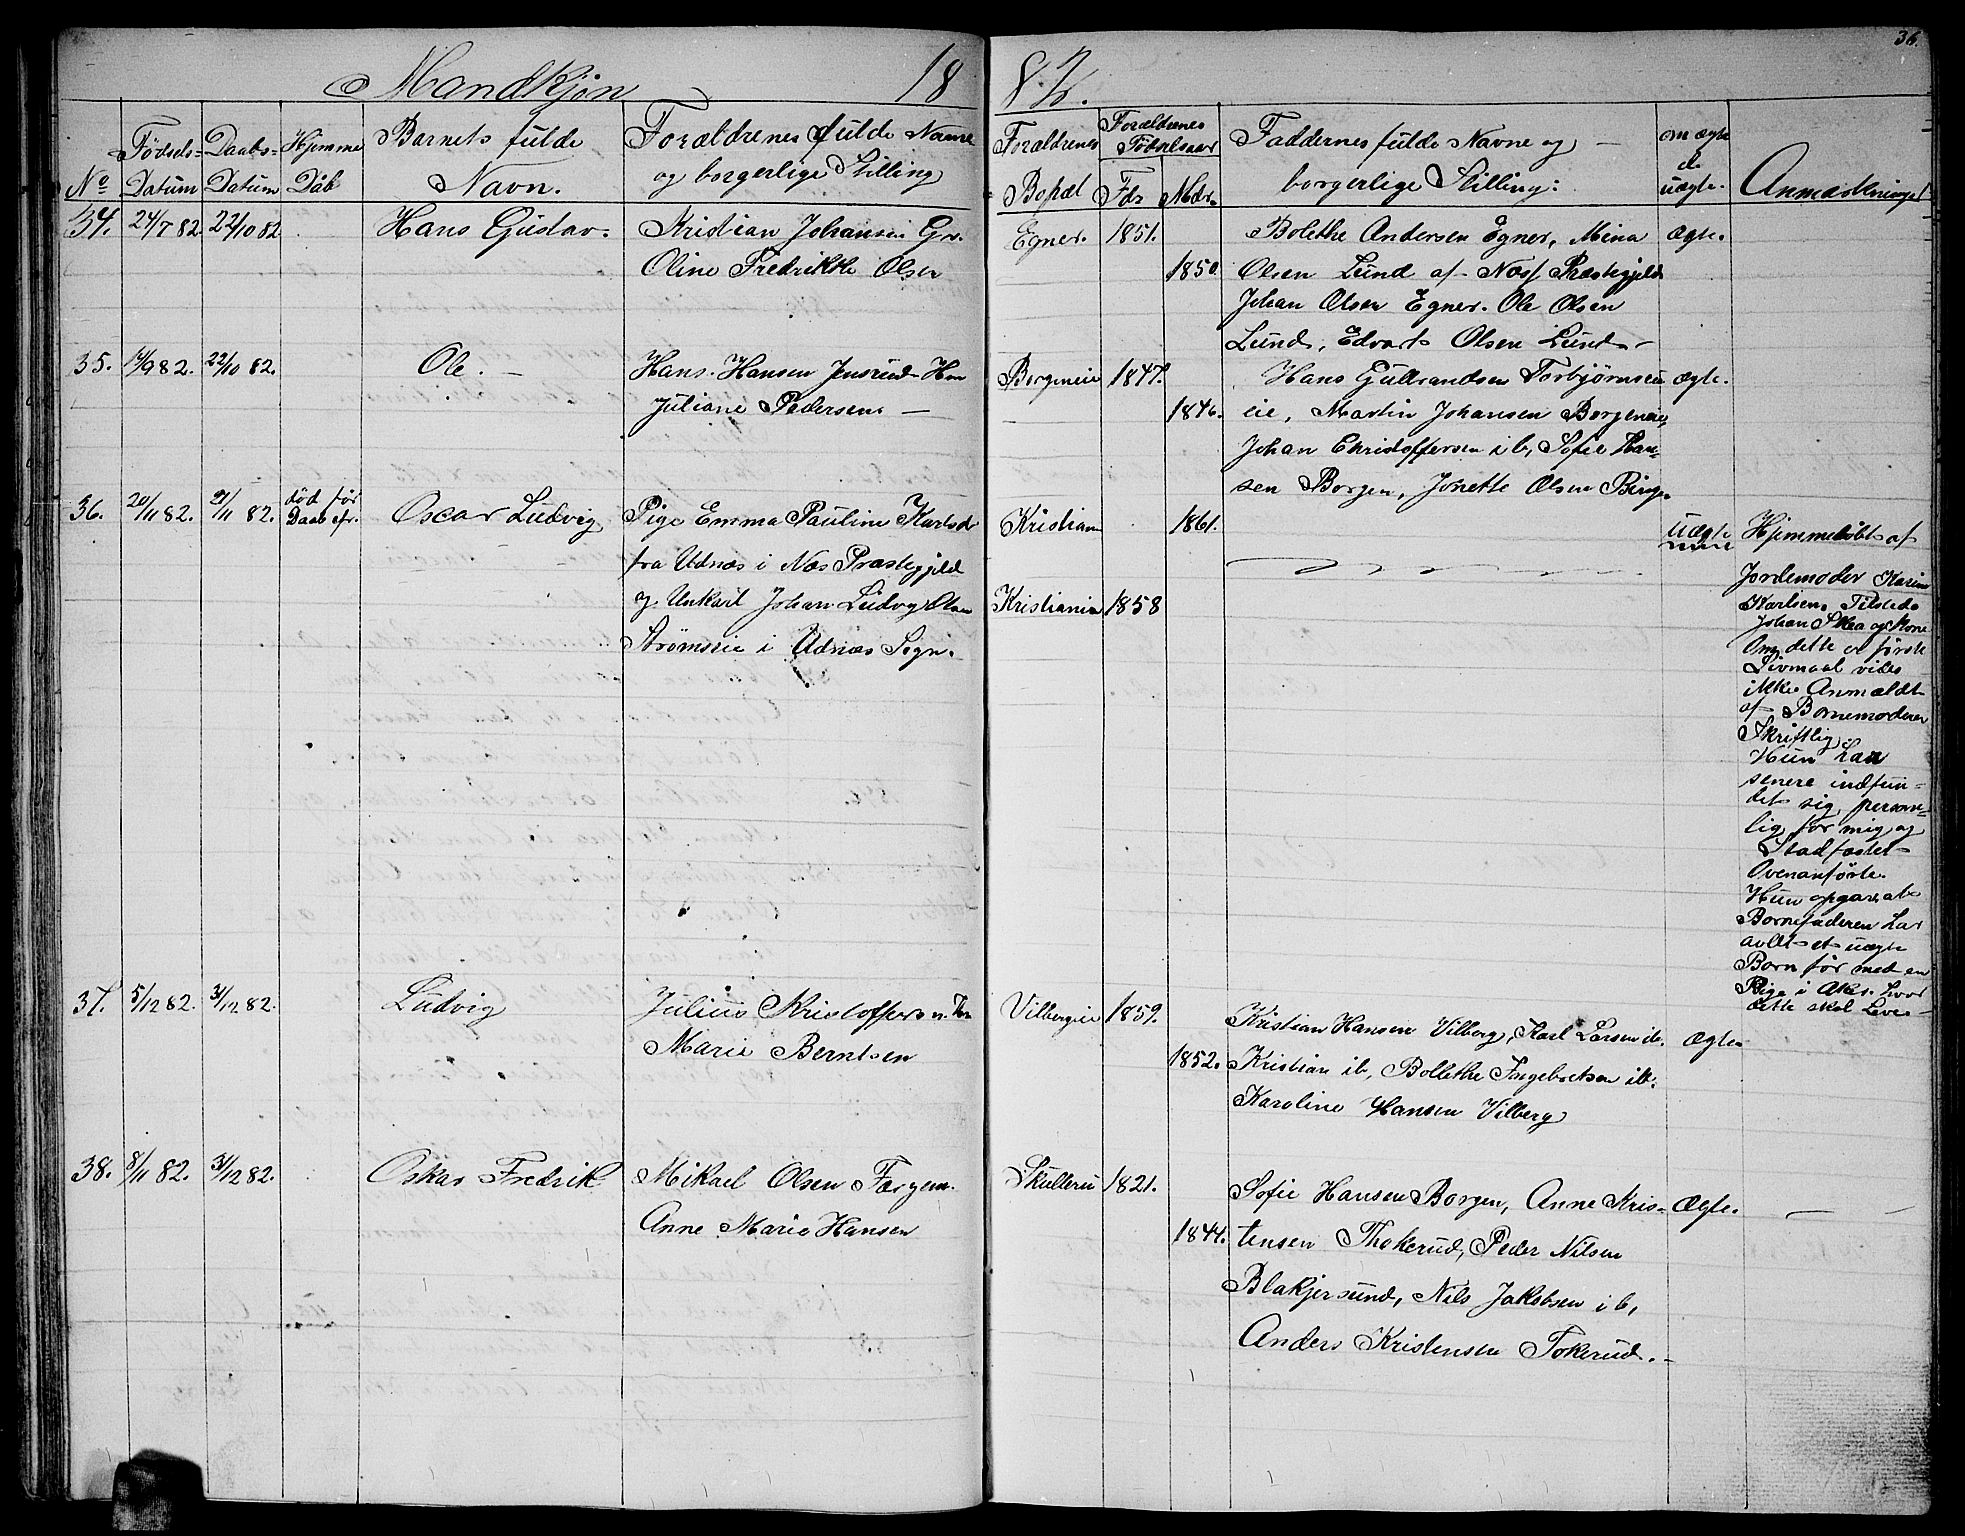 36.
Mandkjøn 18 82.
No Fødsels-Datum Daabs-Datum Hjemme Dåb Barnets fulde Navn. Forældrenes fulde Navne og borgerlige Stilling Forældrenes Bopæl Forældrenes Fødselsaar Fdr Mdr. Faddernes fulde Navne og borgerlige Stilling: om ægte el. uægte. Anmærkninger
34. 24/7 82. 22/10 82 Hans Gustav. Kristian Johansen Gr. Egner. 1851. Bolethe Andersen Egner, Mina ægte.
Oline Fredrikke Olsen 1850. Olsen Lund af Næs Præstegjeld
Johan Olsen Egner. Ole Olsen
Lund, Edvart Olsen Lund
35. 14/9 82. 22/10 82. Ole. Hans Hansen Jensrud Borgeneie 1847. Hans Gulbrandsen Torbjørnsen ægte.
Juliane Pedersen 1846. eie, Martin Johansen Borgeneie,
Johan Christoffersen ib, Sofie Han-
sen Borgen, Jonette Olsen
36. 20/11 82. 21/11 82. død før Daab Oscar Ludvig Pige Emma Pauline Karlsd Kristiania 1861. uægte Hjemmedøbt af
fra Udnæs i Næs Præstegjeld Jordemoder Karine
g. Unkarl Johan Ludvig Olsen Kristiania 1858 Karlsen. Tilstede
Strømseie i Udnæs Sogn. Johan Skea og Kone
Om dette er første
Leirmaal vides
ikke Anmældt
af Barnemoderen
Skriftlig.
Hun har
senere indfun-
det sig person-
lig for mig og
Stadfæstet
Ovenanførte.
Hun opgav at
Barnefaderen har
avlet et uægte
Barn før med en
Pige i Aker. hvor
dette skal Leve
37. 5/12 82. 31/12 82. Ludvig Julius Kristoffersen Vilbergeie 1859. Kristian Hansen Vilberg, Karl Larsen ib. ægte
Marie Berntsen 1852. Kristian ib, Bollethe Ingebretsen ib.
Karoline Hansen Vilberg
38. 8/11 82. 31/12 82. Oskar Fredrik Mikael Olsen Skulleru 1821. Sofie Hansen Borgen, Anne Kris- Ægte.
Anne Marie Hansen 1844. tensen Thokerud, Peder Nilsen
Blakjersund, Nils Jakobsen ib,
Anders Kristensen Tokerud.